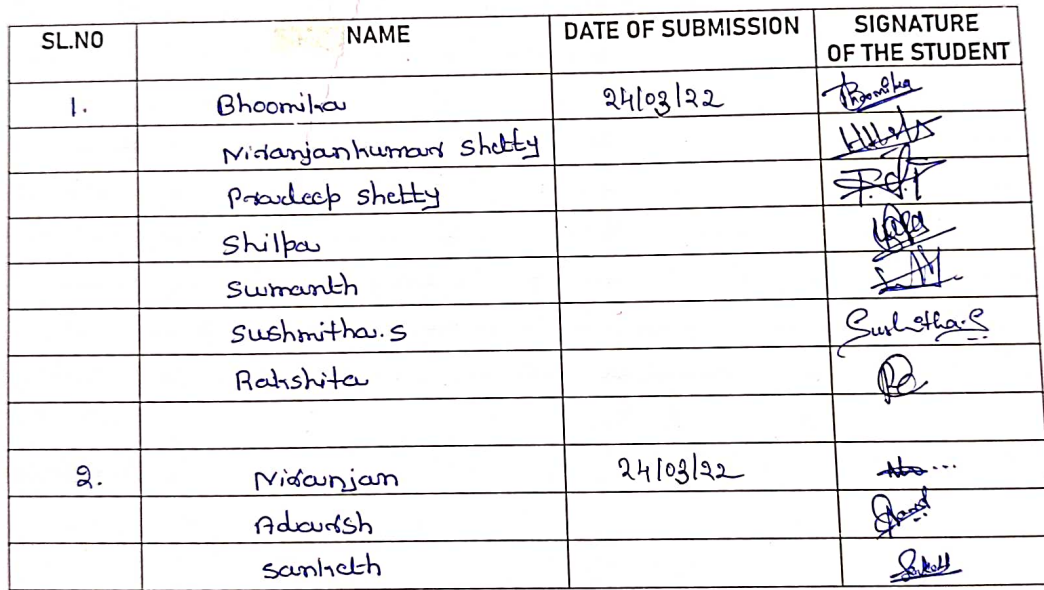 SL.NO NAME DATE OF SUBMISSION SIGNATURE OF THE STUDENT
1. Bhoomika 24/03/22 Bhoomika
Niranjankumar Shetty
Pradeep Shetty
Shilpa
Sumanth
Sushmitha.S Sushmitha.S
Rakshita
2. Niranjan 24/03/22
Adarsh
Sanketh